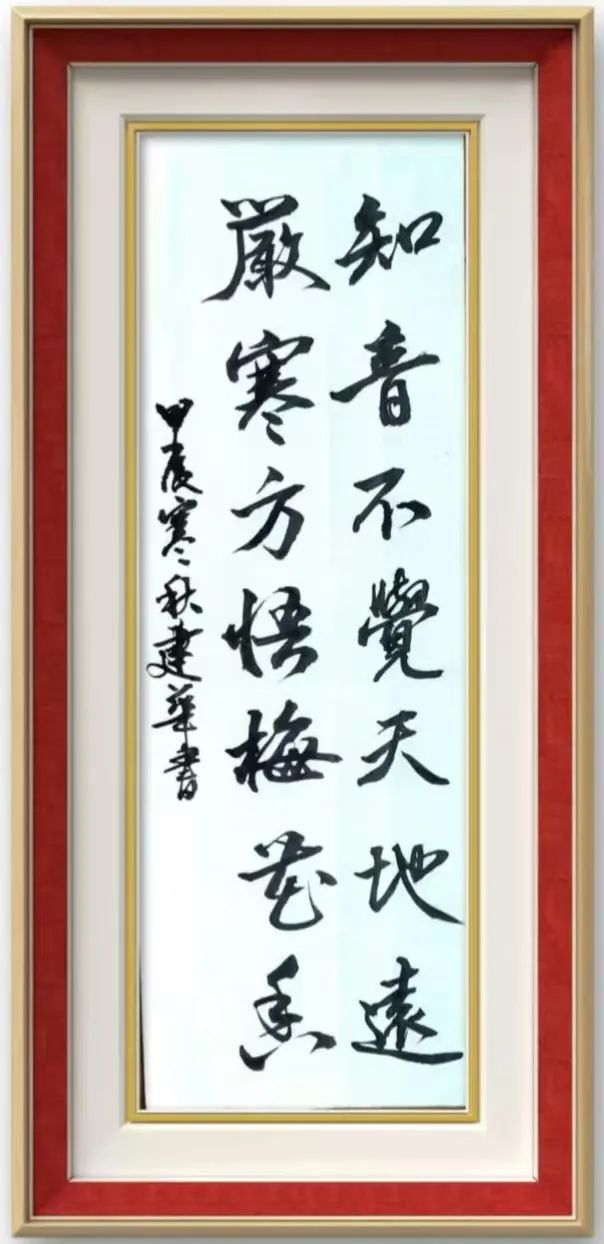 知音不覺天地遠
嚴寒方悟梅花香
甲辰寒秋建華書